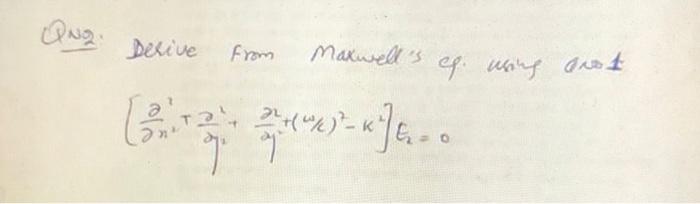 QN2. Derive from Maxwell's eq. using
[∂²/∂x² + ∂²/∂y² + ∂²/∂y² + (ω/c)² - K²] E₂ = 0